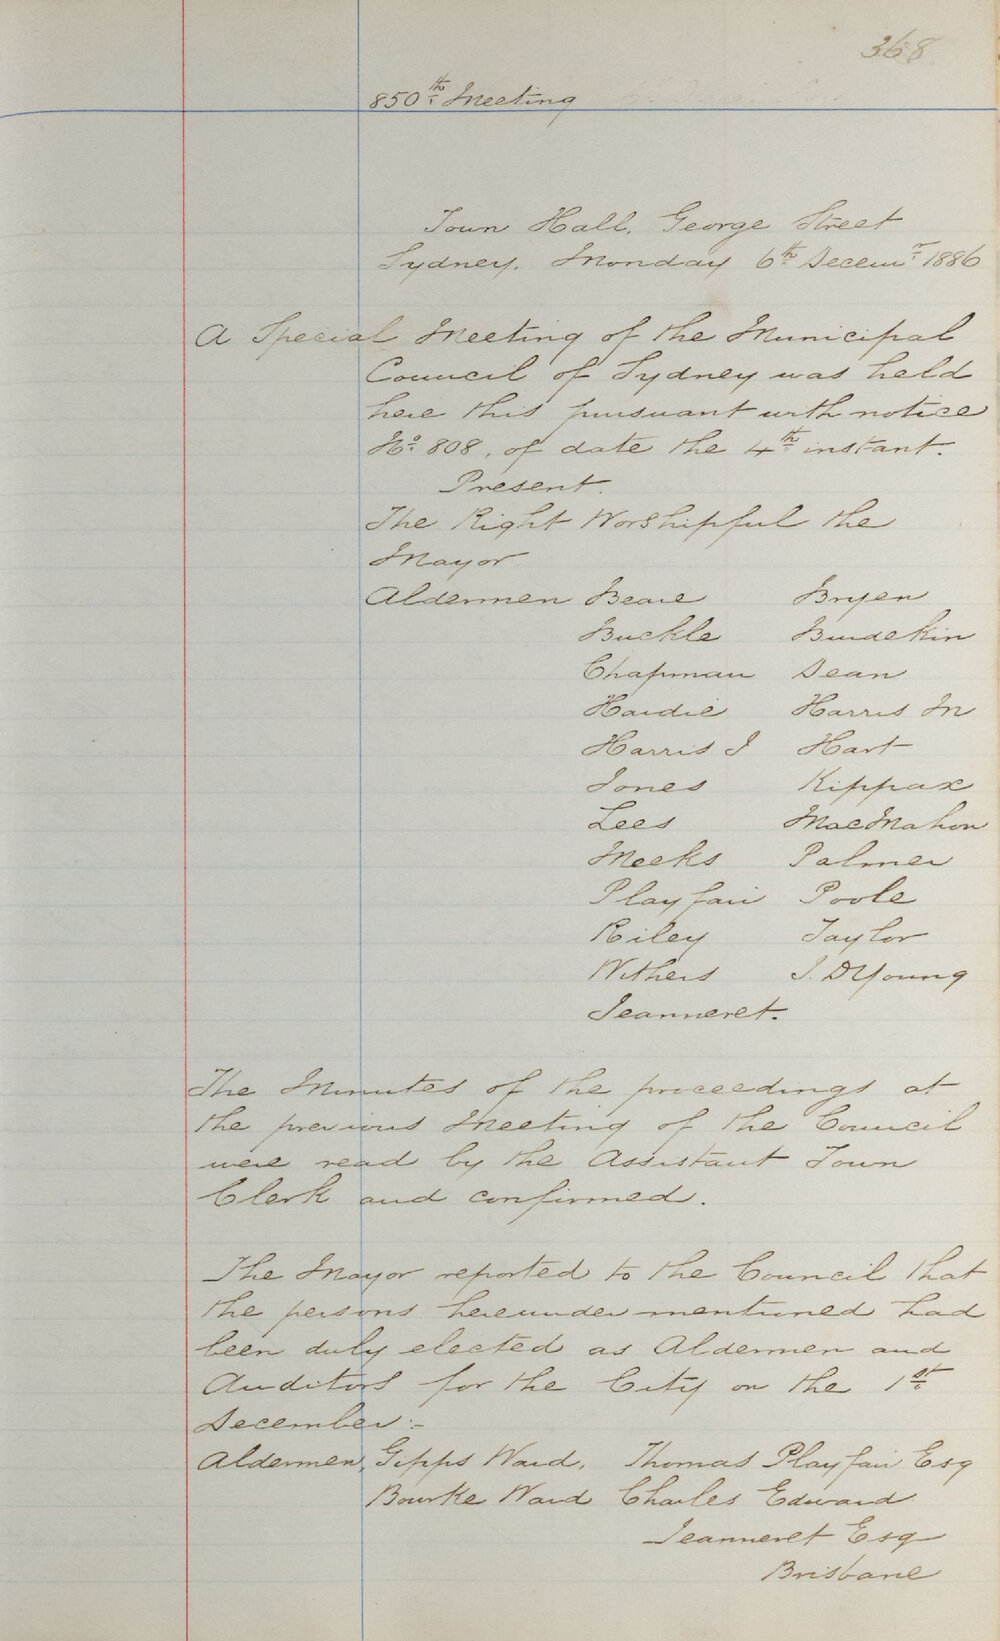 368
850th Meeting
Town Hall, George Street
Sydney. Monday 6th Decemr 1886
A Special Meeting of the Municipal
Council of Sydney was held
here this pursuant with notice
No 808, of date the 4th instant.
Present.
The Right Worshipful the
Mayor
Aldermen Beare Bryen
Buckle Burdekin
Chapman Dean
Hardie Harris M
Harris J Hart
Jones Kippax
Lees MacMahon
Meeks Palmer
Playfair Poole
Riley Taylor
Withers J. D Young
Jeanneret.
The Minutes of the proceedings at
the previous Meeting of the Council
were read by the Assistant Town
Clerk and confirmed.
The Mayor reported to the Council that
the persons hereunder mentioned had
been duly elected as Aldermen and
Auditors for the City on the 1st
December:-
Aldermen, Gipps Ward, Thomas Playfair Esq
Bourke Ward Charles Edward
Jeanneret Esq
Brisbane